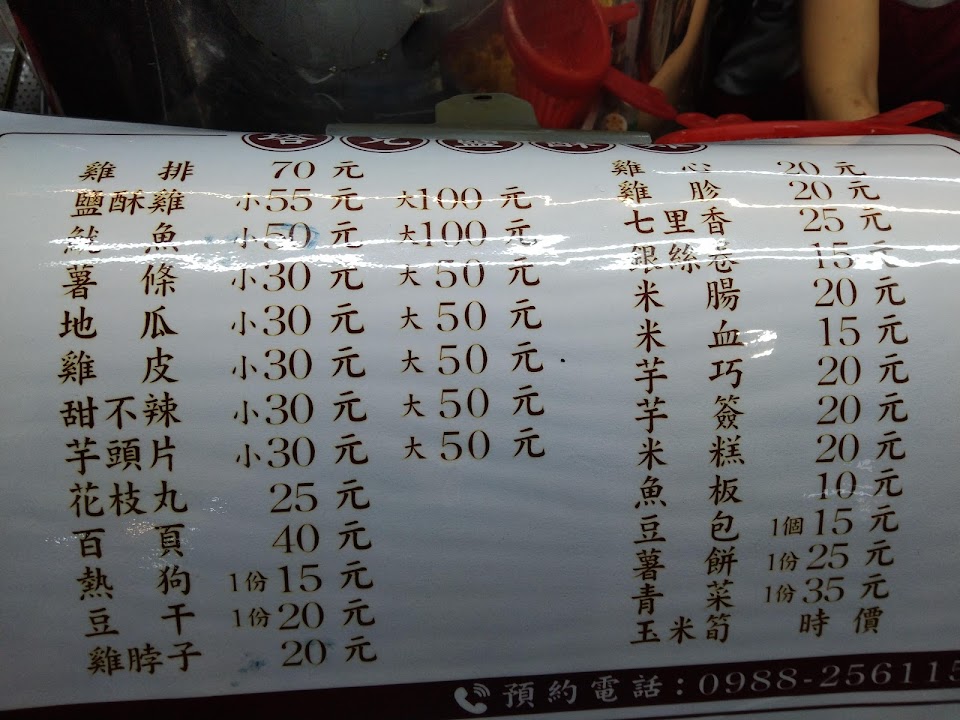 雞排 70 元
鹽酥雞 小55 元 大100 元
魷魚 小50 元 大100 元
薯條 小30 元 大 50 元
地瓜 小30 元 大 50 元
雞皮 小30 元 大 50 元
甜不辣 小30 元 大 50 元
芋頭片 小30 元 大 50 元
花枝丸 25 元
百頁 40 元
熱狗 1份 15 元
豆干 1份 20 元
雞脖子 20 元
雞心 20 元
雞胗 20 元
七里香 25 元
銀絲卷 15 元
米腸 20 元
米血 15 元
芋巧 20 元
芋簽 20 元
米糕 20 元
魚板 10 元
豆包 1個 15 元
薯餅 1份 25 元
青菜 1份 35 元
玉米筍 時價
預約電話：0988-256115